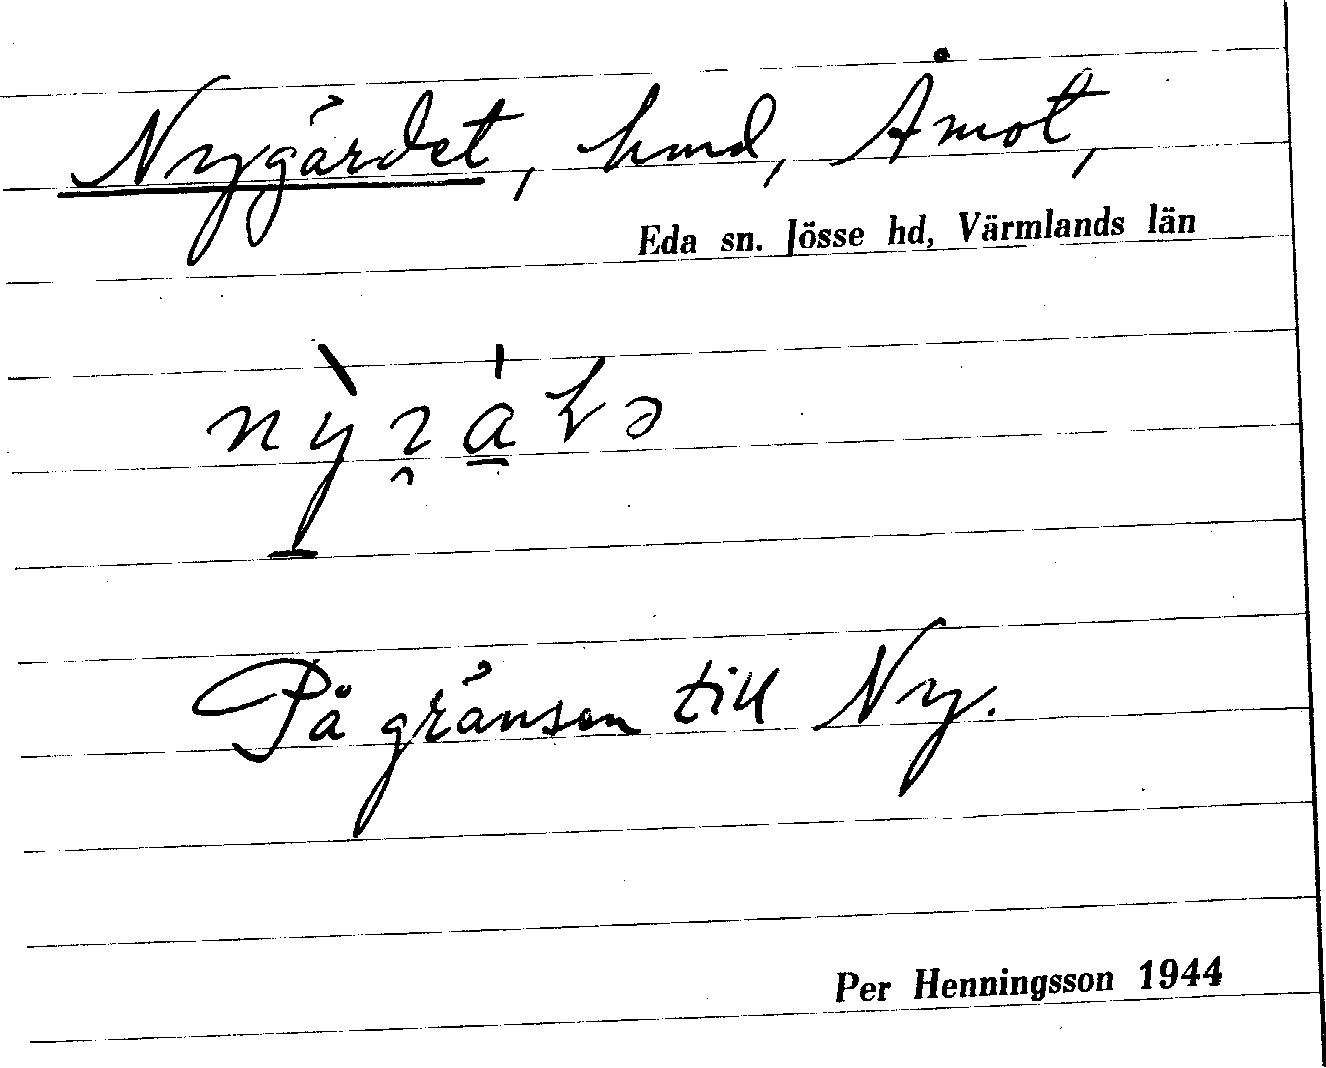 Nygärdet, hmd, Åmot,
Eda sn. Jösse hd, Värmlands län
På gränsen till Ny.
Per Henningsson 1944